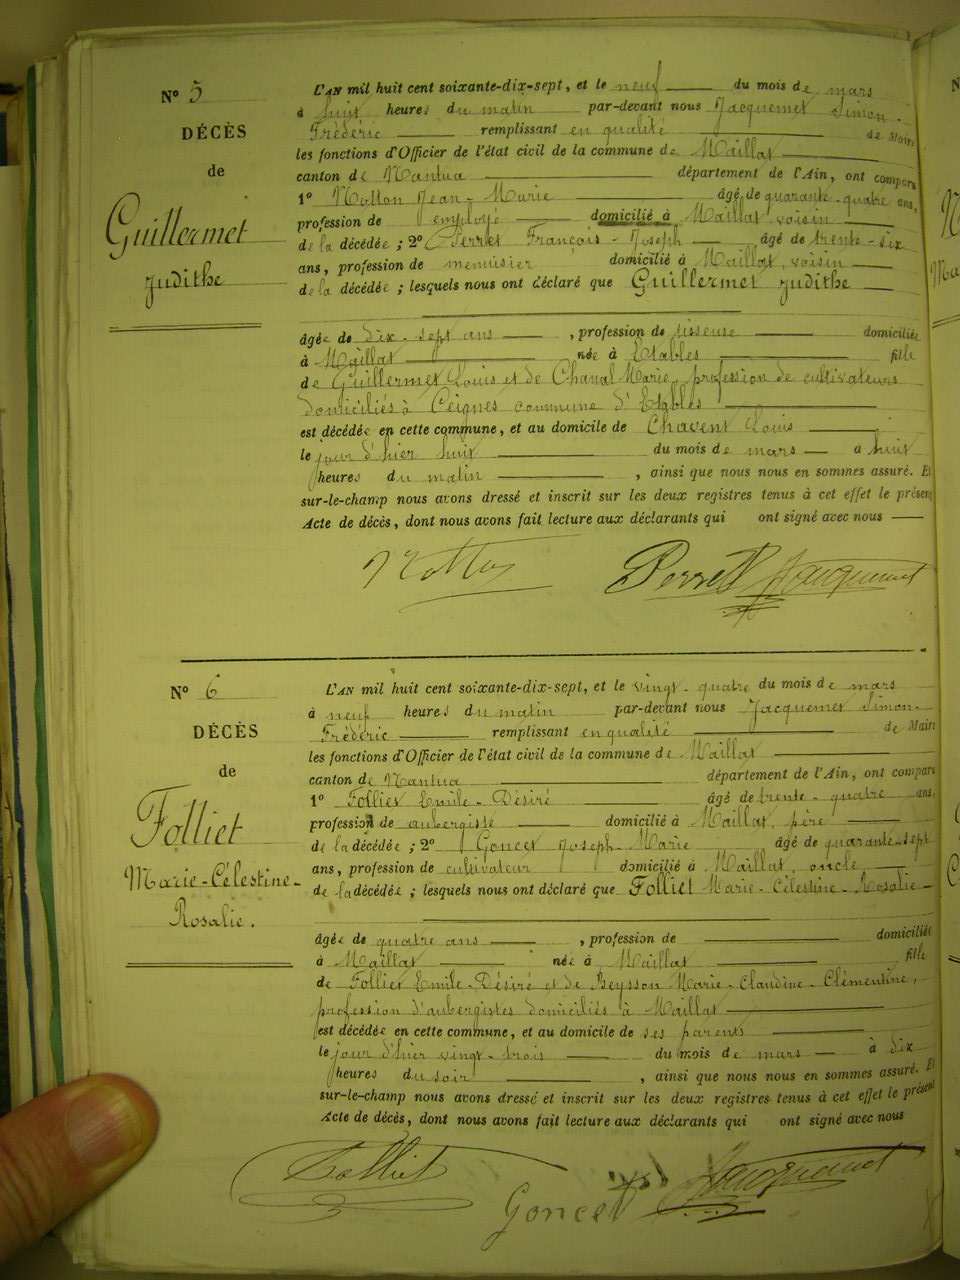 N° 5
DÉCÈS
de
Guillermet
Judithe
L'AN mil huit cent soixante-dix-sept, et le neuf du mois de mars
à huit heures du matin par-devant nous Jacquemet Simon-
Frédéric remplissant en qualité de Maire
les fonctions d'Officier de l'état civil de la commune de Maillat
canton de Nantua département de l'Ain, ont comparu
1° Notton Jean-Marie âgé de quarante-quatre ans,
profession de employé domicilié à Maillat, voisin
de la décédée ; 2° Perret François-Joseph âgé de trente-six
ans, profession de menuisier domicilié à Maillat, voisin
de la décédée ; lesquels nous ont déclaré que Guillermet Judithe
âgée de dix-sept ans , profession de tisseuse domiciliée
à Maillat née à Etables fille
de Guillermet Louis et de Marie, profession de cultivateurs
domiciliés à Ceignes commune d'Etables
est décédée en cette commune, et au domicile de Chavent Louis
le jour d'hier huit du mois de mars à huit
heures du matin , ainsi que nous nous en sommes assuré. Et
sur-le-champ nous avons dressé et inscrit sur les deux registres tenus à cet effet le présent
Acte de décès, dont nous avons fait lecture aux déclarants qui ont signé avec nous
Notton Perret Jacquemet
N° 6
DÉCÈS
de
Folliet
Marie-Célestine-
Rosalie.
L'AN mil huit cent soixante-dix-sept, et le vingt-quatre du mois de mars
à neuf heures du matin par-devant nous Jacquemet Simon-
Frédéric remplissant en qualité de Maire
les fonctions d'Officier de l'état civil de la commune de Maillat
canton de Nantua département de l'Ain, ont comparu
1° Folliet Emile-Désiré âgé de trente-quatre ans,
profession de aubergiste domicilié à Maillat, père
de la décédée ; 2° Goncet Joseph-Marie âgé de quarante-sept
ans, profession de cultivateur domicilié à Maillat, oncle
de la décédée ; lesquels nous ont déclaré que Folliet Marie-Célestine-Rosalie
âgée de quatre ans , profession de domiciliée
à Maillat née à Maillat fille
de Folliet Emile-Désiré et de Beysson Marie-Claudine-Clémentine,
profession d'aubergistes domiciliés à Maillat
est décédée en cette commune, et au domicile de ses parents
le jour d'hier vingt-trois du mois de mars à dix
heures du soir , ainsi que nous nous en sommes assuré. Et
sur-le-champ nous avons dressé et inscrit sur les deux registres tenus à cet effet le présent
Acte de décès, dont nous avons fait lecture aux déclarants qui ont signé avec nous
Folliet Goncet Jacquemet